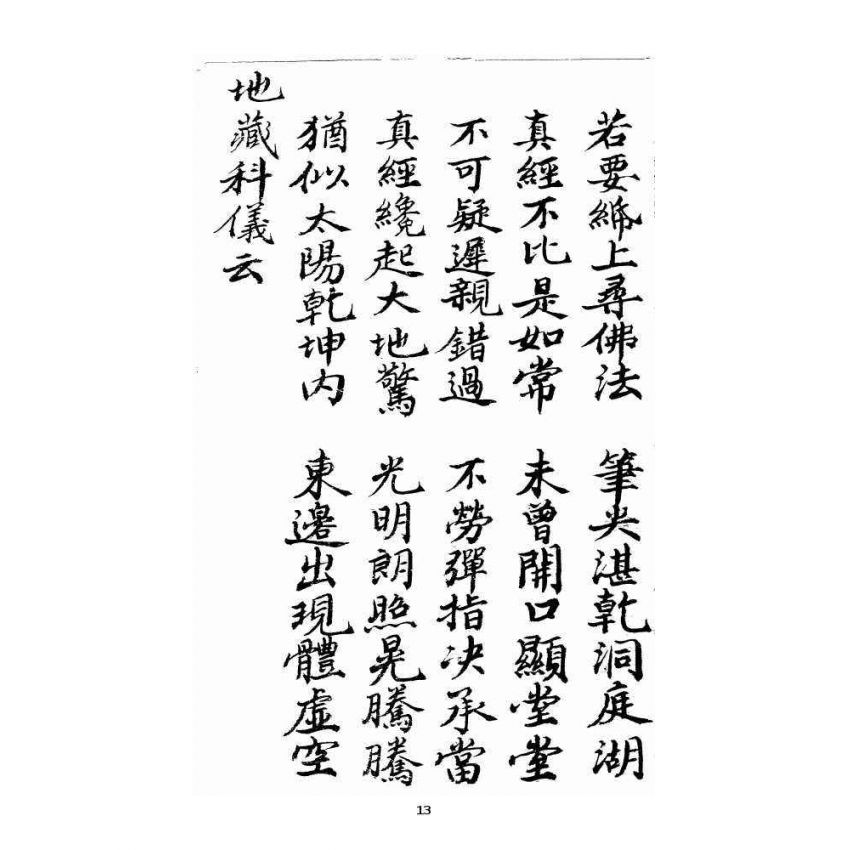 若要紙上尋佛法　筆尖湛乾洞庭湖
真經不比是如常　未曾開口顯堂堂
不可疑遲親錯過　不勞彈指决承當
真經纔起大地驚　光明朗照晃騰騰
猶似太陽乾坤內　東邊出現體虛空
地藏科儀云
13